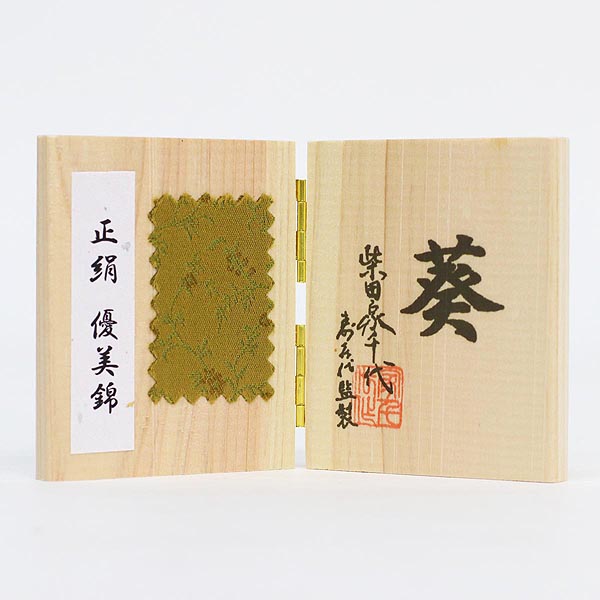 葵
柴田家千代
寿喜代監製
正絹 優美錦